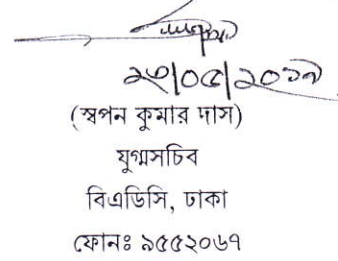 ২৩/০৫/২০১৭
(স্বপন কুমার দাস)
যুগ্মসচিব
বিএডিসি, ঢাকা
ফোনঃ ৯৫৫২০৬৭